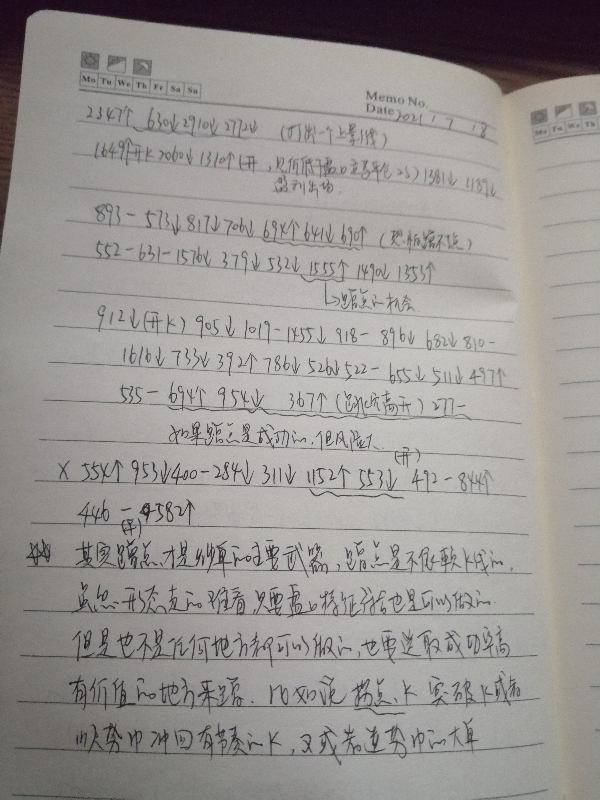 Mo Tu We Th Fr Sa Su
Memo No.
Date 2021 / 7 / 18
2347↑ 630↓ 2910↓ 2772↓ (打出一个上影线)
1649↑开K 2060↓ 1310↑(开, 只价低于盘口立马平仓 23) 1381↓ 1189↓
893- 573↓ 817↓ 706↓ 694↑ 641↓ 690↑
552-631-1576↓ 379↓ 532↓ 1555↑ 1490↓ 1353↑
↳蹭点的机会
912↓(开K) 905↓ 1019-1455↓ 918- 896↓ 682↓ 810-
1616↓ 733↓ 392↑ 786↓ 526↓ 522- 655↓ 511↓ 497↑
535- 694↑ 954↓ 367↑ 277-
如果蹭点是成功的,但风险大
(开)
× 554↑ 953↓ 400-284↓ 311↓ 1152↑ 553↓ 492-844↑
446-582↑
(开)
其实蹭点才是炒单的主要武器,蹭点是不依赖K线的,
虽然形态走的难看,只要盘口特征存在也是可以做的.
但是也不是任何地方都可以做的,也要选取成功率高
有价值的地方来蹭.比如说拐点K 突破K或者
顺势中冲回有节奏的K,又或者逆势中的大单